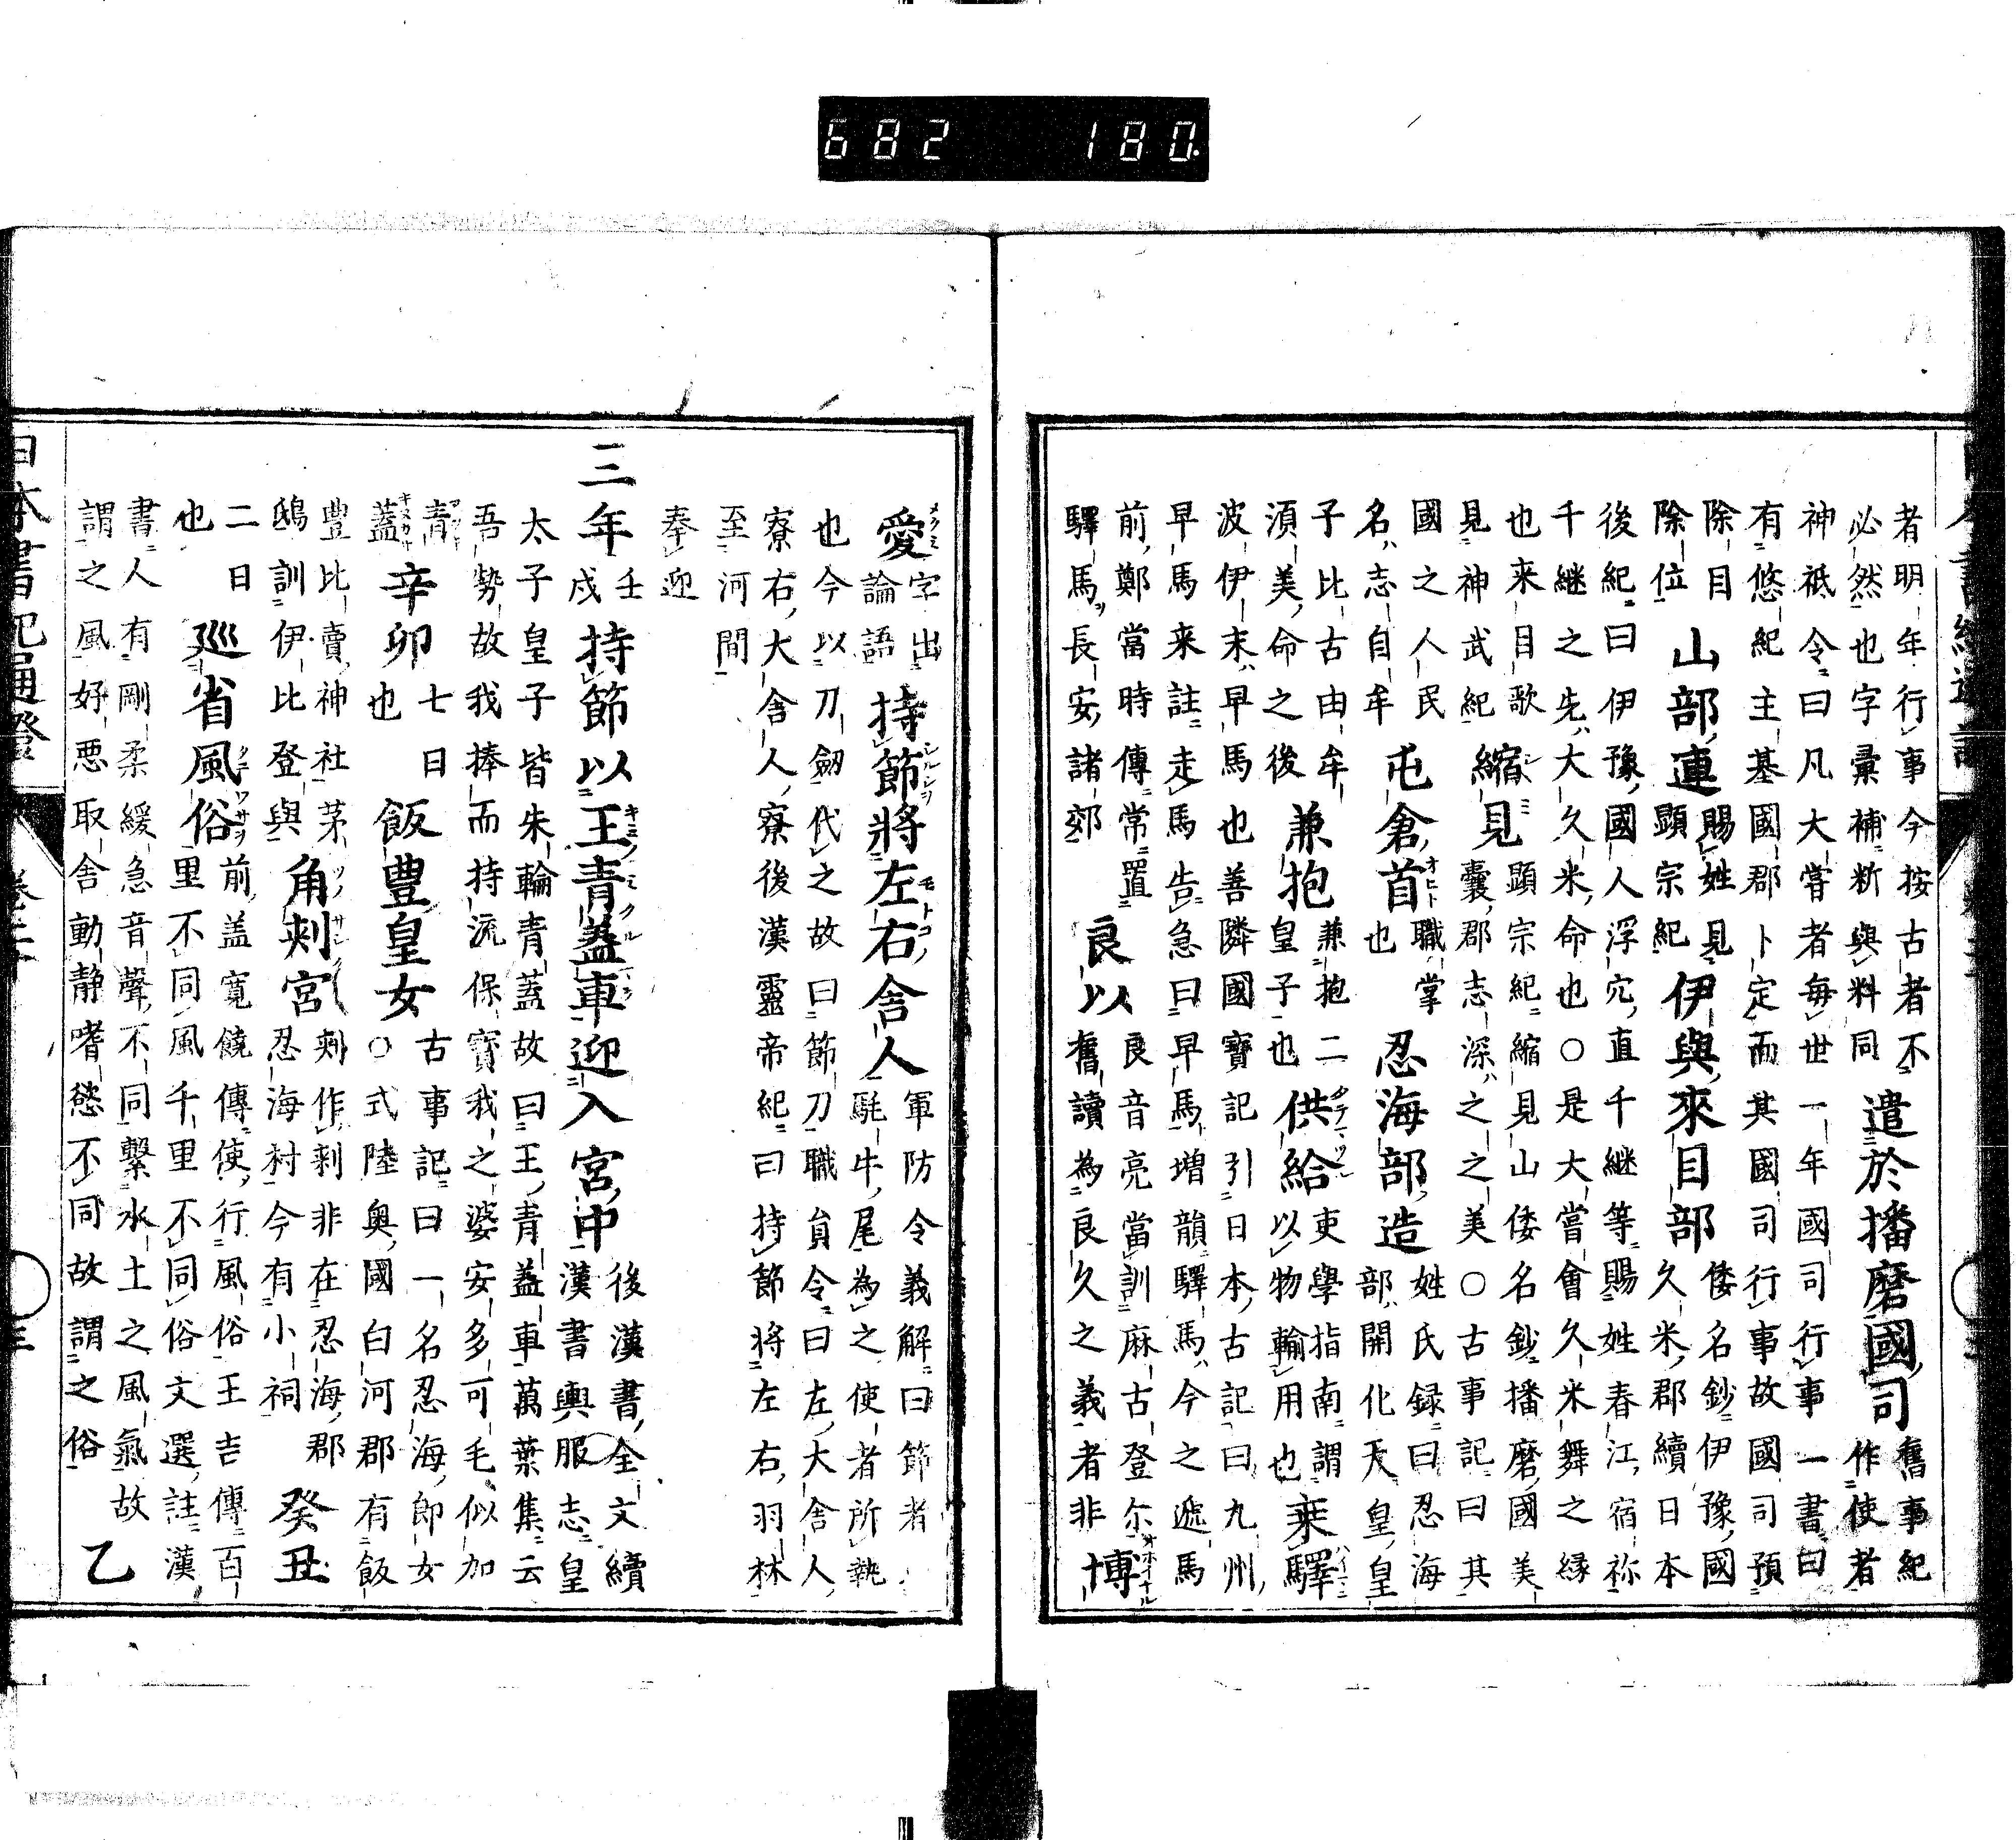 者明年行事今按古者不
必然也字彙補䉼與料同 遣於播磨國司 舊事紀
作使者
神祇令曰凡大嘗者毎世一年國司行事一書曰
有悠紀主基國郡卜定而其國司行事故國司預
除目
除位 山部連 賜姓見
顕宗紀 伊與來目部 倭名鈔伊豫國
久米郡續日本
後紀曰伊豫國人浮穴直千継等賜姓春江宿祢
千継之先大久米命也○是大嘗會久米舞之縁
也来目歌
見神武紀 縮見 顕宗紀縮見山倭名鈔播磨國美
囊郡志深之之美○古事記曰其
國之人民
名志自牟 屯倉首 職掌
也 忍海部造 姓氏録曰忍海
部開化天皇皇
子比古由牟
須美命之後 兼抱 兼抱二
皇子也 供給 吏學指南謂
以物輸用也 乗驛
波伊末早馬也善隣國寶記引日本古記曰九州
早馬来註走馬告急曰早馬増韻驛馬今之遞馬
前鄭當時傳常置
驛馬長安諸郊 良以 良音亮當訓麻古登尓
舊讀為良久之義者非 博
愛 字出
論語 持節將左右舎人 軍防令義解曰節者
毦牛尾為之使者所執
也今以刀劔代之故曰節刀職貟令曰左大舎人
寮右大舎人寮後漢靈帝紀曰持節将左右羽林
至河間
奉迎
三年 壬
戌 持節以王青蓋車迎入宮中 後漢書全文續
漢書輿服志皇
太子皇子皆朱輪青蓋故曰王青蓋車萬葉集云
吾勢故我捧而持流保寳我之婆安多可毛似加
青
蓋 辛卯 七日
也 飯豊皇女 古事記曰一名忍海郎女
○式陸奥國白河郡有飯
豊比賣神社茅
鴟訓伊比登與 角刾宮 刾作剌非在忍海郡
忍海村今有小祠 癸丑
二日
也 巡省風俗 前盖寛饒傳使行風俗王吉傳百
里不同風千里不同俗文選註漢
書人有剛柔緩急音聲不同繫水土之風氣故
謂之風好悪取舎動静嗜慾不同故謂之俗 乙
日本書紀通證
682 180